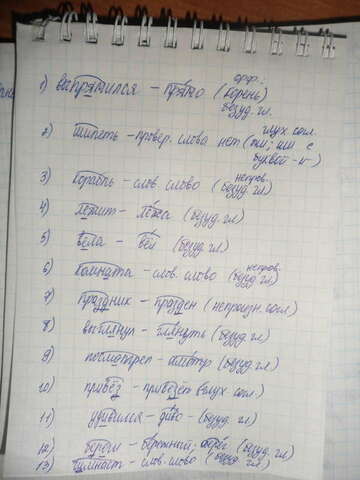 орф.:
1) выпрямился – прямо (корень)
безуд. гл.
глух. согл.
2) Шипеть – провер. слова нет (жи; ши с
буквой -и-)
непров.
3) Корабль – слов. слово (безуд. гл)
4) Лежит – Лёжа (безуд. гл)
5) Вела – вёл (безуд. гл)
непров.
6) Комната – слов. слово (безуд. гл)
7) Праздник – празден (непроизн. согл)
8) выглянул – глянуть (безуд. гл)
9) посмотрел – смотр (безуд. гл)
10) привёз – привезёт (глух. согл.)
11) удивился – диво – (безуд. гл)
12) береги – бережный, (безуд. гл)
13) – слов. слово (безуд. гл)